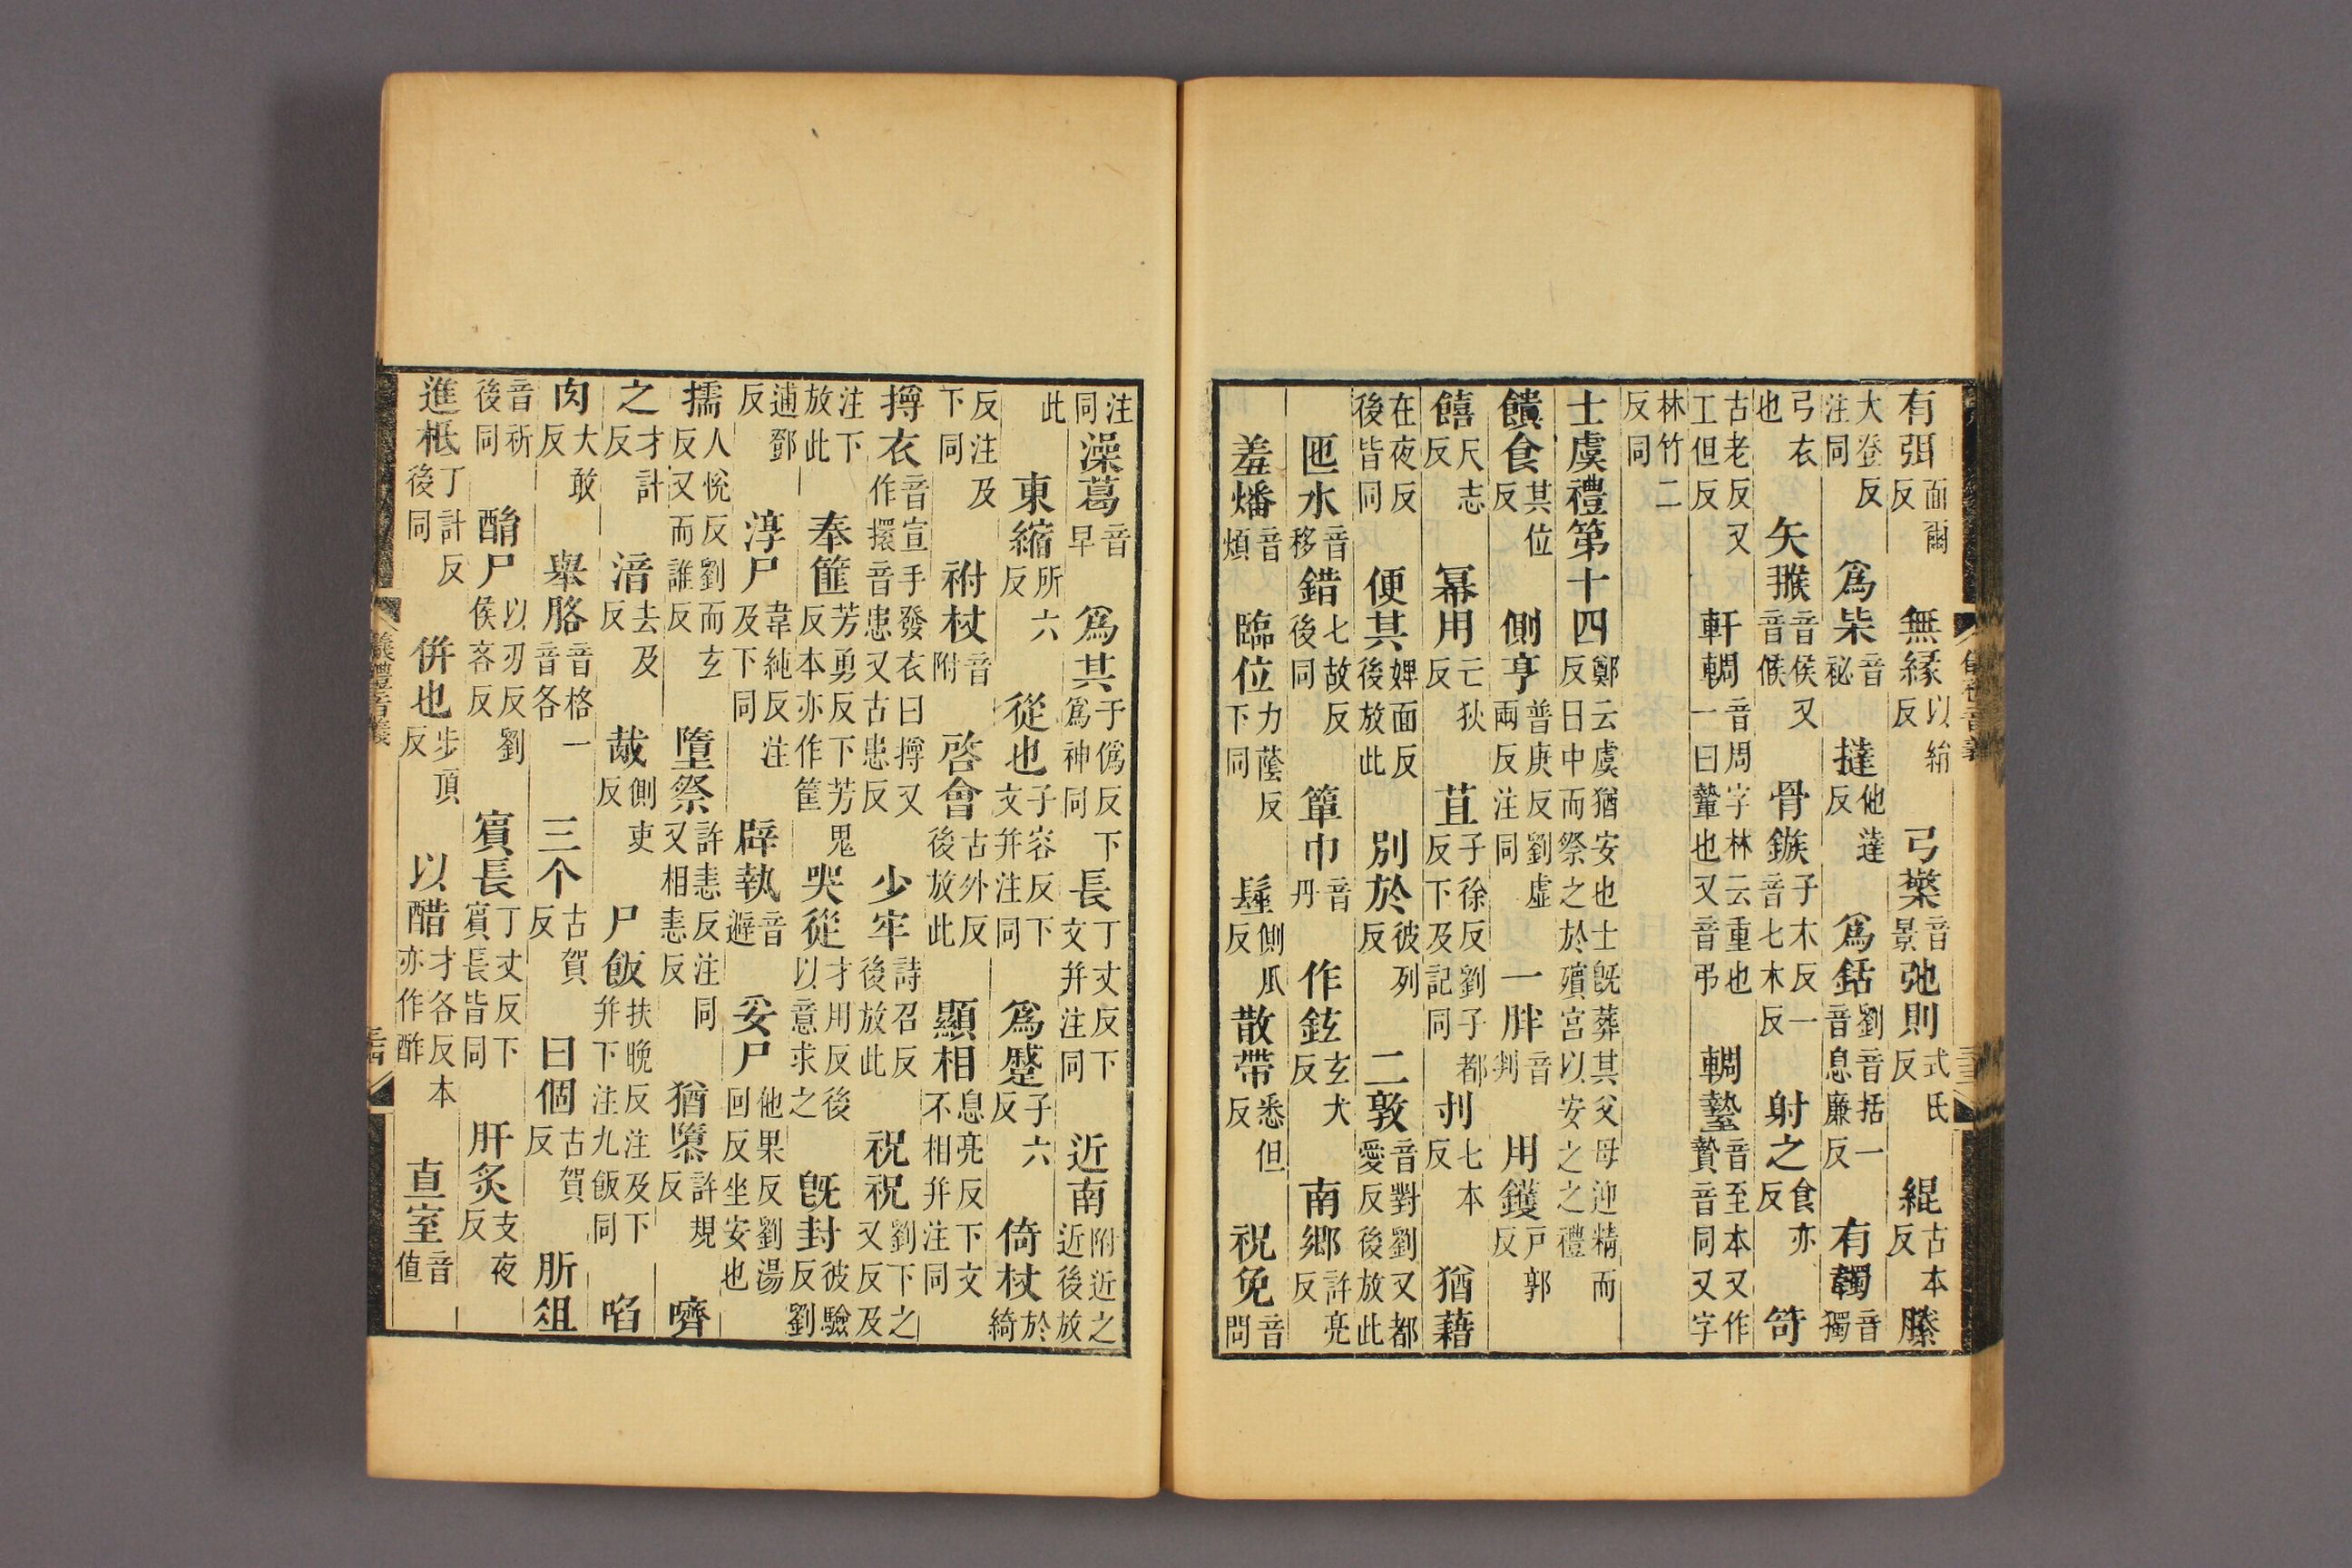 有弭面爾反 無緣以絹反 弓檠音景 弛則式氏反 緄古本反 縢
大登反注同 爲柲音祕 撻他達反 爲銛劉音括一音息廉反 有韣音獨
弓衣也 矢 猴音侯又音候 骨鏃子木反一音七木反 射之食亦反 笴
古老反又工但反 軒輖音周字林云重也一曰蟄也又音弔 輖摯音至本又作贄音同又字
林竹二反同
士虞禮第十四鄭云虞猶安也士旣葬其父母迎精而反日中而祭之於殯宮以安之之禮
饋食其位反 側亨普庚反劉虛兩反注同 一胖音判 用鑊戶郭反
饎尺志反 冪用亡狄反 苴子徐反劉子都反下及記同 刌七本反 猶藉
在夜反後皆同 便其婢面反後放此 別於彼列反 二敦音對劉又都愛反後放此
匜水音移 錯七故反後同 簞巾音丹 作鉉玄犬反 南鄉許亮反
羞燔音煩 臨位力蔭反下同 髽側瓜反 散帶悉但反 祝免音問
注同此 澡葛音早 爲其于僞反下爲神同 長丁丈反下文并注同 近南附近之近後放
東縮所六反 從也子容反下文并注同 爲蹙子六反 倚杖於綺
反注及下同 祔杖音附 啓會古外反後放此 顯相息亮反下文不相并注同
撙衣音宣手發衣曰撙又作擐音患又古患反 少牢詩召反後放此 祝祝劉下之又反及
注下放此 奉篚芳勇反下芳鬼反本亦作筐 哭從才用反後以意求之 旣封彼驗反劉
逋鄧反 淳尸韋純反注及下同 辟執音避 妥尸他果反劉湯回反坐安也
擩人悅反劉而玄反又而誰反 墮祭許恚反注同又相恚反 猶隳許規反 嚌
之才計反 湆去及反 胾側吏反 尸飯扶晚反注及下并下注九飯同 啗
肉大敢反 舉胳音格一音各 三个古賀反 曰個古賀反 肵俎
音祈後同 酳尸以刃反劉侯吝反 賓長丁丈反下賓長皆同 肝炙支夜反
進柢丁計反後同 併也步頂反 以醋才各反本亦作酢 直室音値
儀禮音義